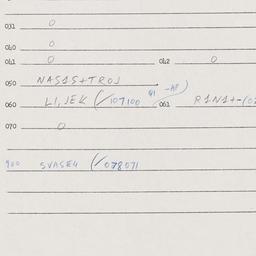 031 0
040 0
041 0 042 0
050 NAS1S+TROJ
060 LI, JEK (/107100 061 R1N1+-/02
070 0
900 SVASEK (/078071